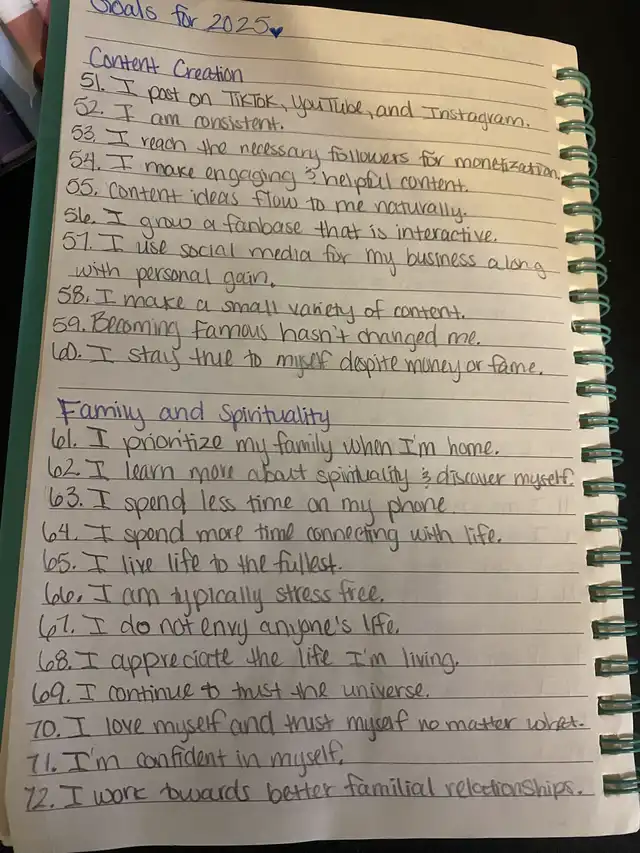 Goals for 2025
Content Creation
51. I post on TikTok, YouTube, and Instagram.
52. I am consistent.
53. I reach the necessary followers for monetization.
54. I make engaging & helpful content.
55. Content ideas flow to me naturally.
56. I grow a fanbase that is interactive.
57. I use social media for my business along
with personal gain.
58. I make a small variety of content.
59. Becoming famous hasn't changed me.
60. I stay true to myself despite money or fame.
Family and Spirituality
61. I prioritize my family when I'm home.
62. I learn more about spirituality & discover myself.
63. I spend less time on my phone
64. I spend more time connecting with life.
65. I live life to the fullest.
66. I am typically stress free.
67. I do not envy anyone's life.
68. I appreciate the life I'm living.
69. I continue to trust the universe.
70. I love myself and trust myself no matter what.
71. I'm confident in myself.
72. I work towards better familial relationships.